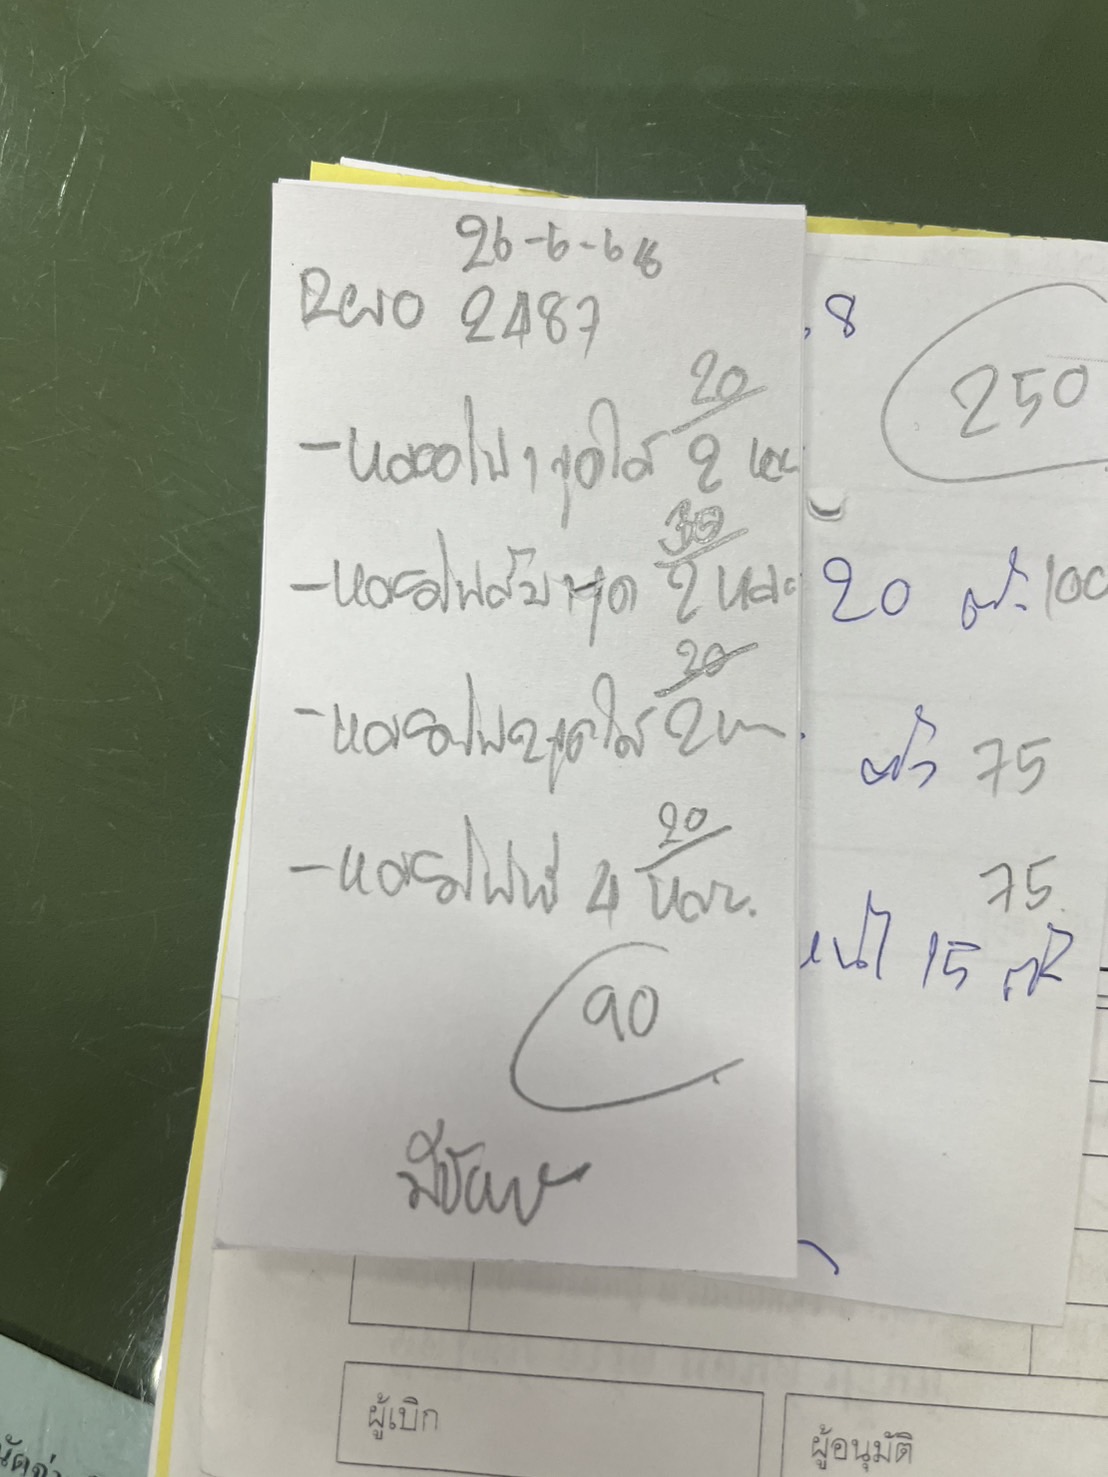 26-6-68
Revo 2487
20
-หลอดไฟ 1 จุดใส 2 หล
30
-หลอดไฟส้ม 1 จุด 2 หลอ
20
-หลอดไฟ 2 จุดใส 2 ห
20
-หลอดไฟ 4 หลอ.
90
มีชัย
8
250
20 ตัว 100
ตัว 75
75
15 ตัว
ผู้เบิก
ผู้อนุมัติ